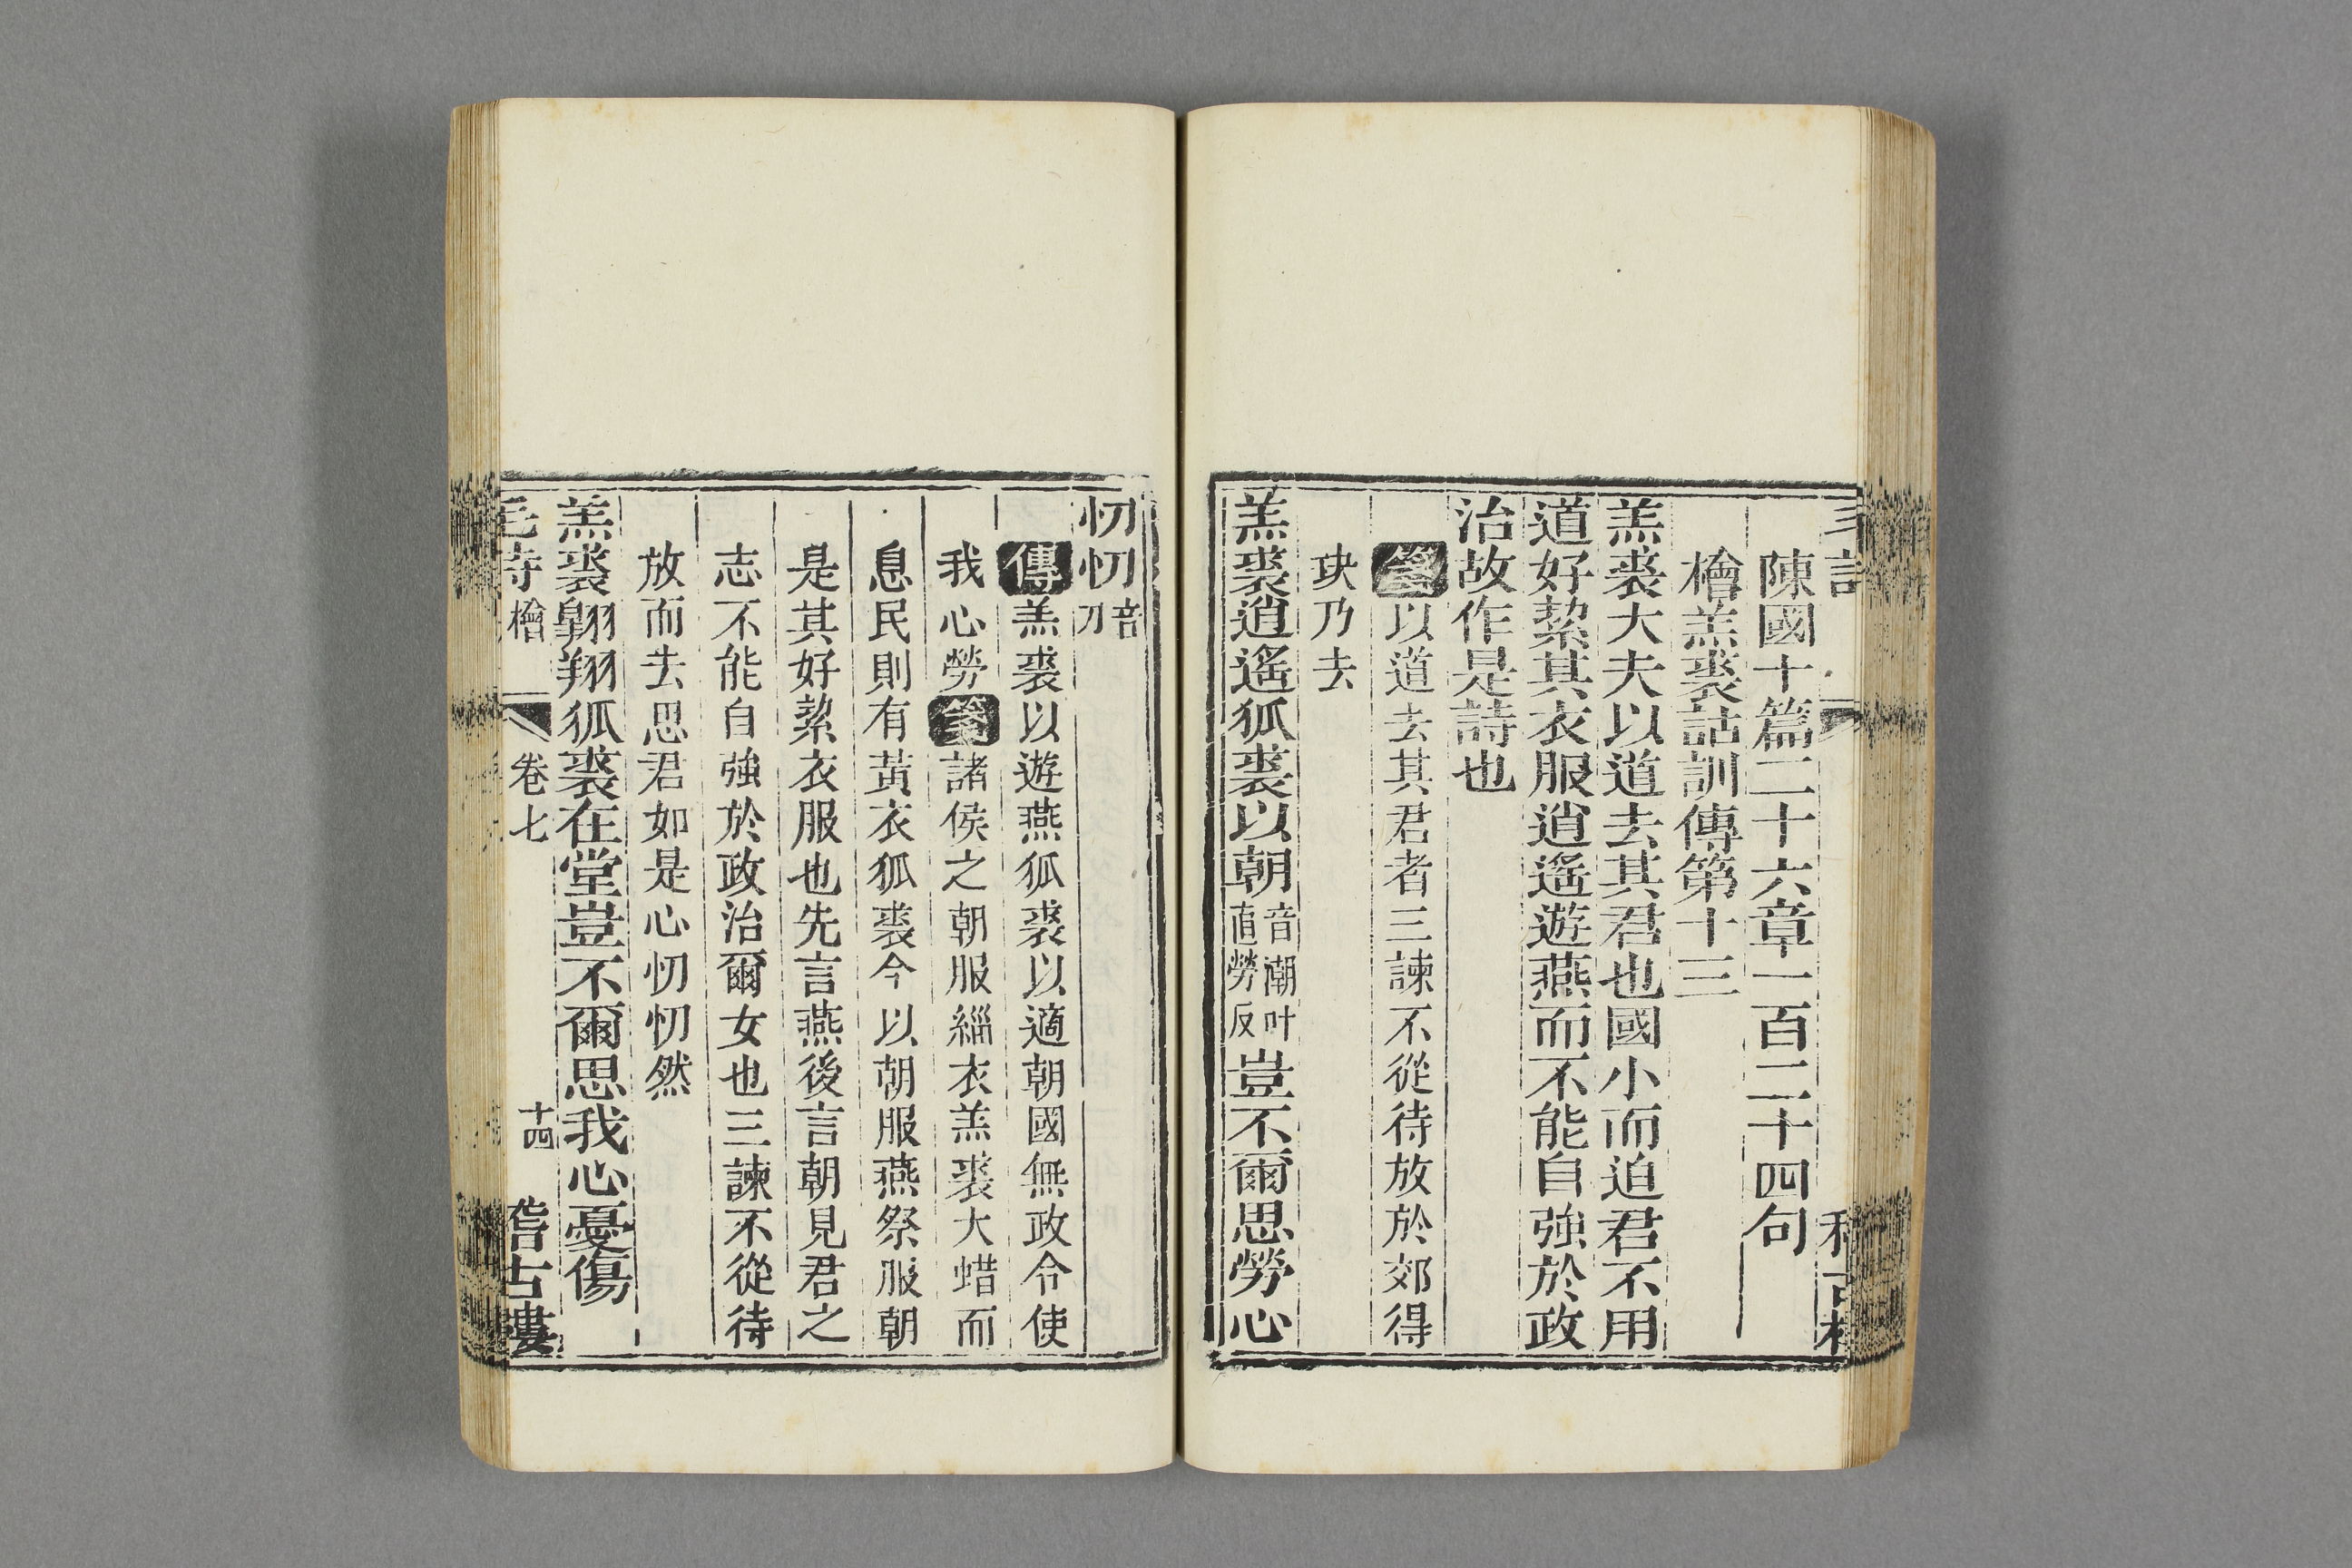 陳國十篇二十六章一百二十四句
檜羔裘詁訓傳第十三
羔裘大夫以道去其君也國小而迫君不用
道好絜其衣服逍遙遊燕而不能自強於政
治故作是詩也
箋以道去其君者三諫不從待放於郊得
玦乃去
羔裘逍遙狐裘以朝音潮叶直勞反豈不爾思勞心
忉忉音刀
傳羔裘以遊燕狐裘以適朝國無政令使
我心勞箋諸侯之朝服緇衣羔裘大蜡而
息民則有黃衣狐裘今以朝服燕祭服朝
是其好絜衣服也先言燕後言朝見君之
志不能自強於政治爾女也三諫不從待
放而去思君如是心忉忉然
羔裘翺翔狐裘在堂豈不爾思我心憂傷
毛詩 檜 卷七 十四 稽古樓